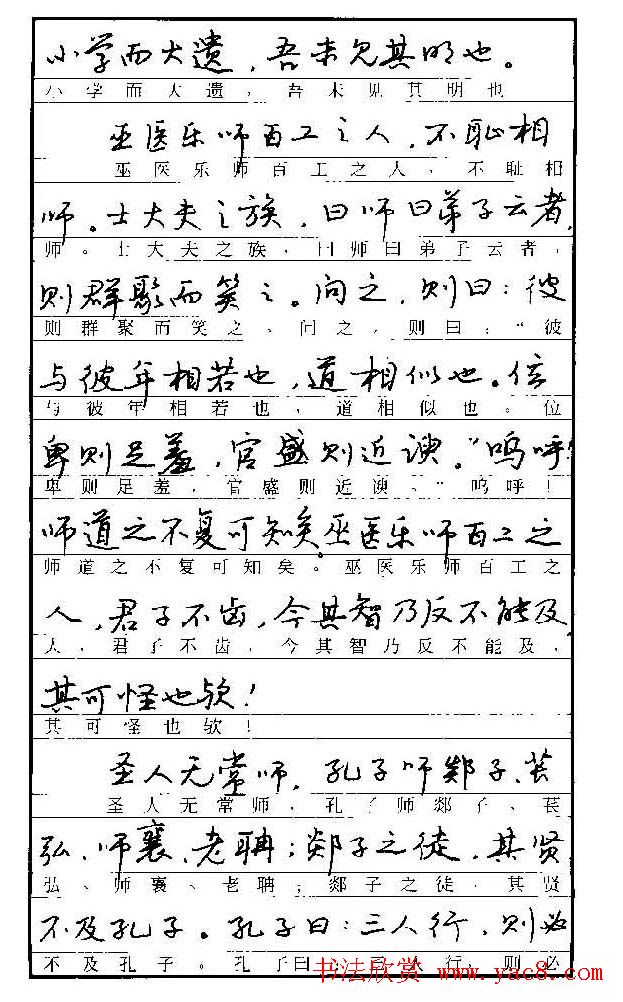 小学而大遗，吾未见其明也。
小学而大遗，吾未见其明也
巫医乐师百工之人，不耻相
巫医乐师百工之人，不耻相
师。士大夫之族，曰师曰弟子云者，
师。士大夫之族，曰师曰弟子云者，
则群聚而笑之。问之，则曰：彼
则群聚而笑之。问之，则曰：“彼
与彼年相若也，道相似也。位
与彼年相若也，道相似也。位
卑则足羞，官盛则近谀。”呜呼！
卑则足羞，官盛则近谀。”呜呼！
师道之不复可知矣。巫医乐师百工之
师道之不复可知矣。巫医乐师百工之
人，君子不齿，今其智乃反不能及
人，君子不齿，今其智乃反不能及，
其可怪也欤！
其可怪也欤！
圣人无常师，孔子师郯子、苌
圣人无常师，孔子师郯子、苌
弘、师襄、老聃；郯子之徒，其贤
弘、师襄、老聃；郯子之徒，其贤
不及孔子。孔子曰：三人行，则必
不及孔子。孔子曰：三人行，则必
书法欣赏 www.yac8.com